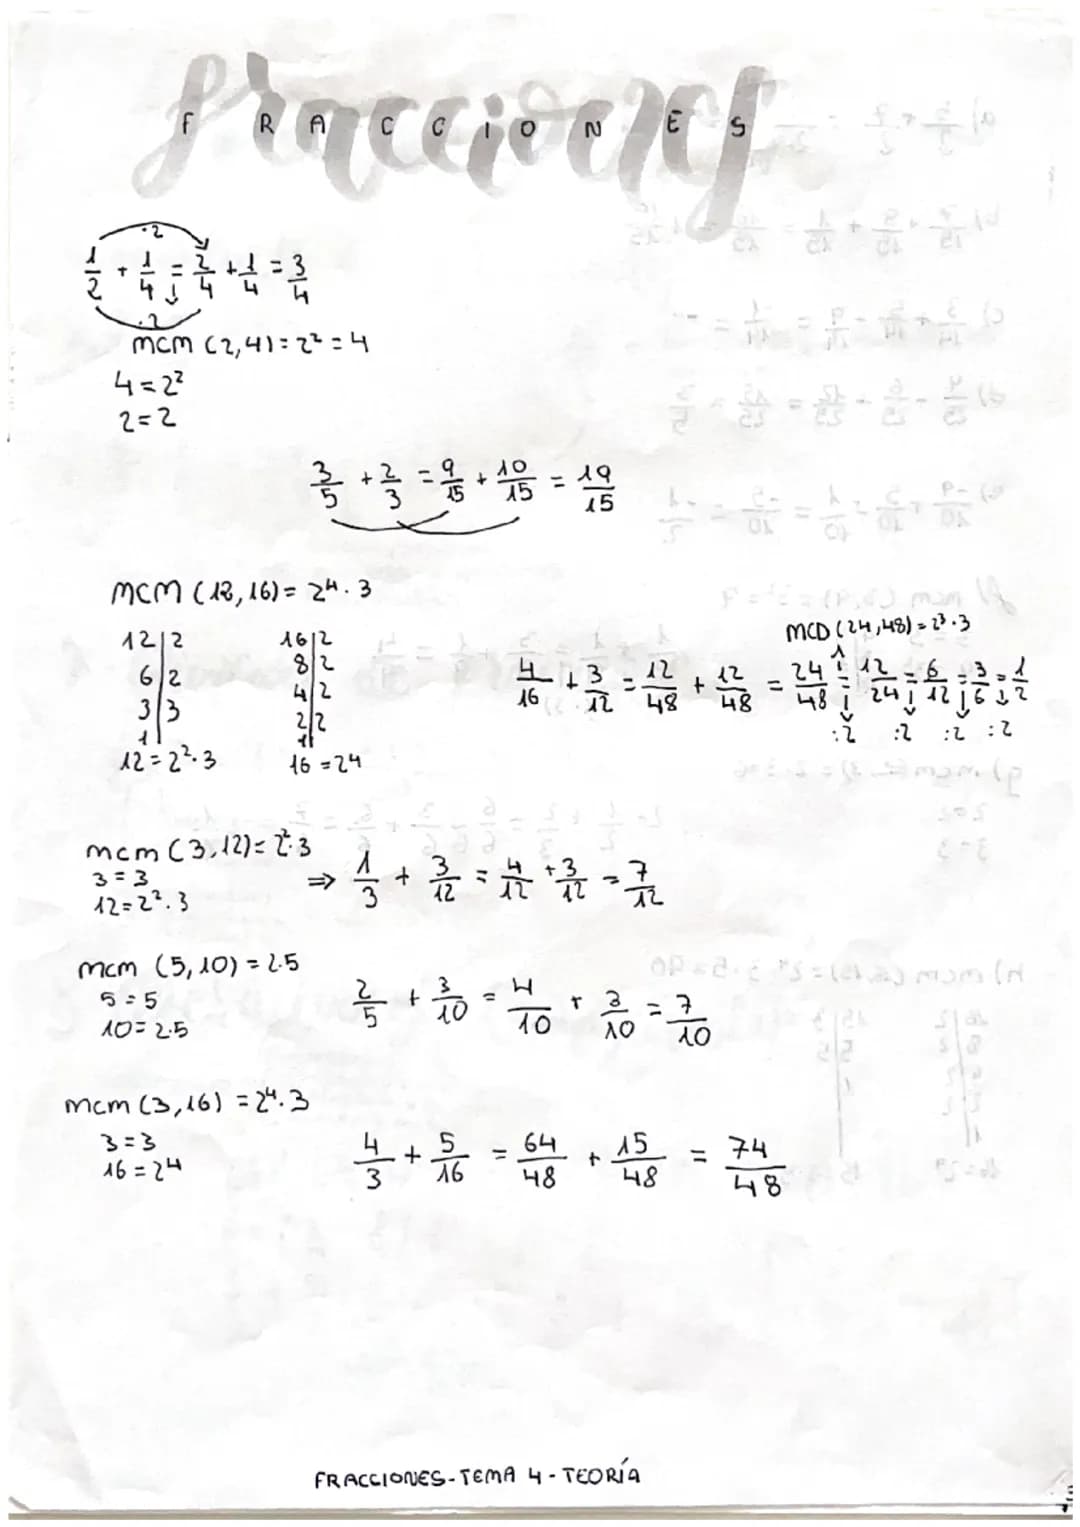 fracciones
F R A C C I O N E S
·2
1/2 + 1/4 = 2/4 + 1/4 = 3/4
·2
mcm (2,4) = 2² = 4
4 = 2²
2 = 2
3/5 + 2/3 = 9/15 + 10/15 = 19/15
MCM (12,16) = 2⁴ · 3
12|2 16|2
6|2 8|2
3|3 4|2
1| 2|2
1|
12 = 2² · 3 16 = 2⁴
MCD (24,48) = 2³ · 3
4/16 + 3/12 = 12/48 + 12/48 = 24/48 = 12/24 = 6/12 = 3/6 = 1/2
:2 :2 :2 :2
mcm (3,12) = 2² · 3
3 = 3
12 = 2² · 3
⇒ 1/3 + 3/12 = 4/12 + 3/12 = 7/12
mcm (5,10) = 2·5
5 = 5
10 = 2·5
2/5 + 3/10 = 4/10 + 3/10 = 7/10
mcm (3,16) = 2⁴ · 3
3 = 3
16 = 2⁴
4/3 + 5/16 = 64/48 + 15/48 = 74/48
FRACCIONES - TEMA 4 - TEORÍA